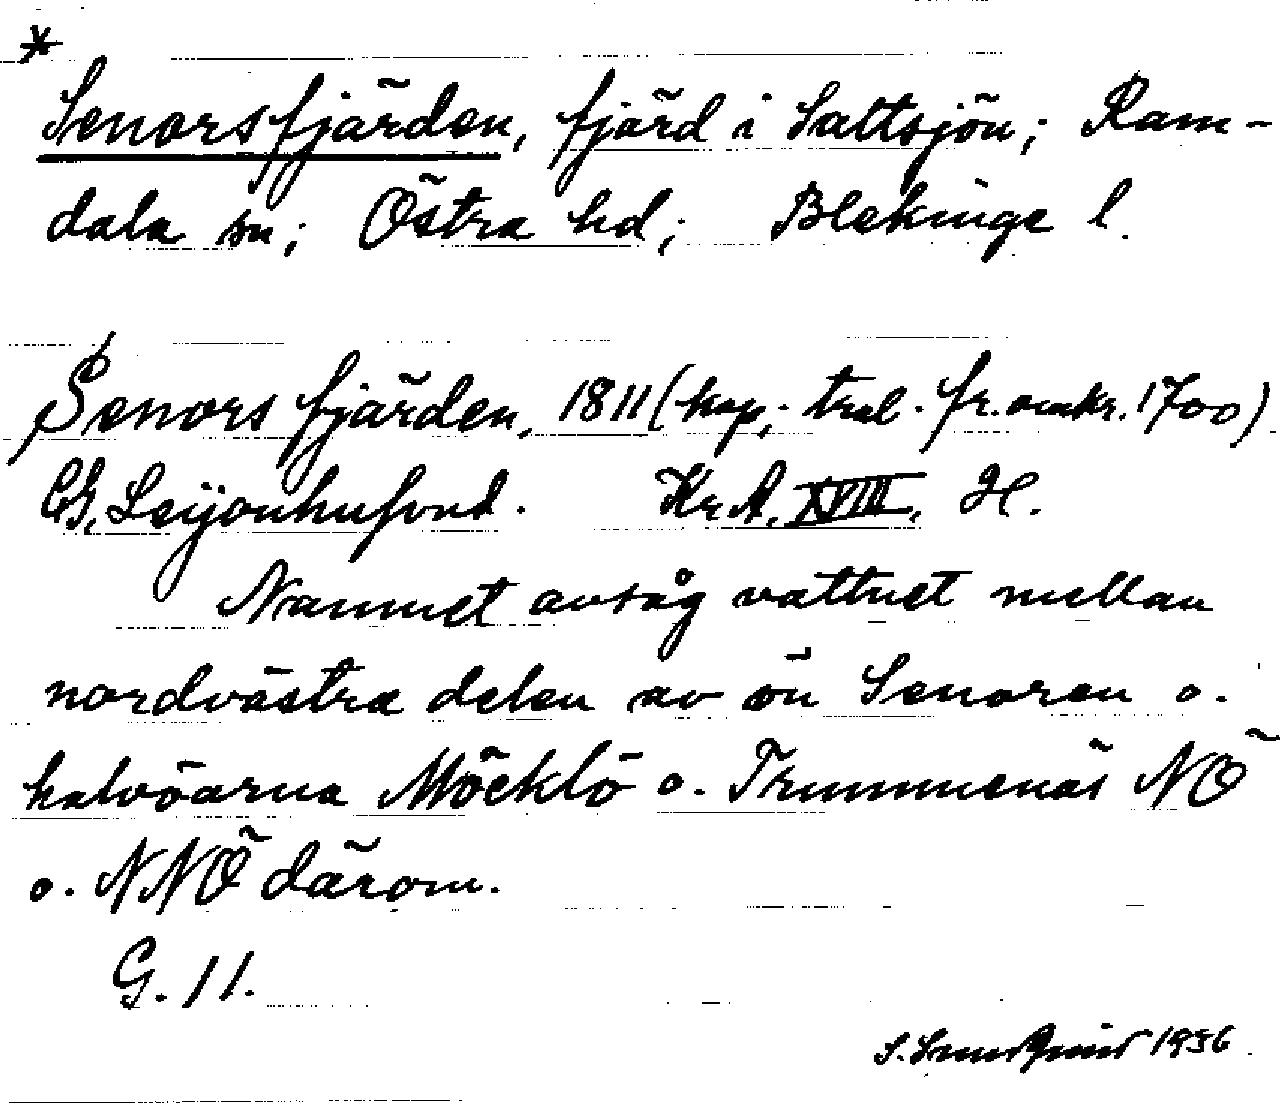 *
Senorsfjärden, fjärd i Saltsjön; Ram-
dala sn; Östra hd; Blekinge l.
Senors fjärden, 1811 (kop, trol. fr. omkr. 1700)
CG. Leijonhufvud. Kr.A. XVIII, H.
Namnet avsåg vattnet mellan
nordvästra delen av ön Senoren o.
halvöarna Möcklö o. Trummenäs NÖ
o. NNÖ därom.
G. 11.
S. 1936